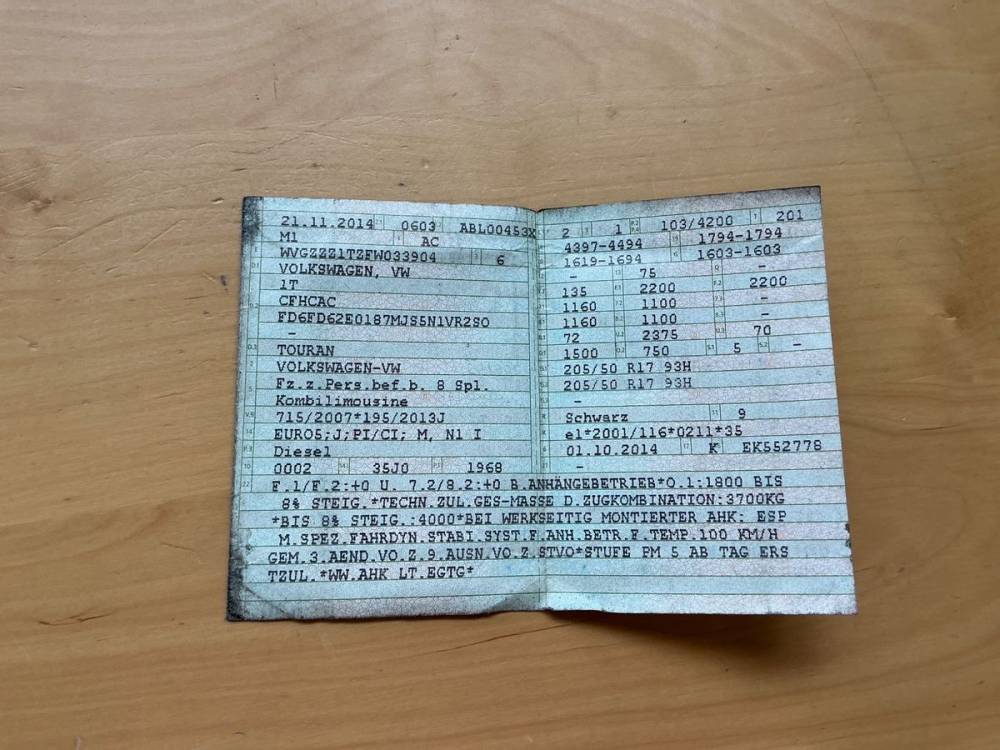 21.11.2014 0603 ABL00453X
M1 AC
WVGZZZ1TZFW033904 6
VOLKSWAGEN, VW
1T
CFHCAC
FD6FD62E0187MJS5N1VR2SO
-
TOURAN
VOLKSWAGEN-VW
Fz.z.Pers.bef.b. 8 Spl.
Kombilimousine
715/2007*195/2013J
EURO5;J;PI/CI; M, N1 I
Diesel
0002 35J0 1968
2 1 103/4200 201
4397-4494 1794-1794
1619-1694 1603-1603
- 75 - -
135 2200 2200
1160 1100 -
1160 1100 -
72 2375 70
1500 750 5 -
205/50 R17 93H
205/50 R17 93H
-
Schwarz 9
e1*2001/116*0211*35
01.10.2014 K EK552778
-
F.1/F.2:+0 U. 7.2/8.2:+0 B.ANHÄNGEBETRIEB*O.1:1800 BIS
8% STEIG.*TECHN.ZUL.GES-MASSE D.ZUGKOMBINATION:3700KG
*BIS 8% STEIG.:4000*BEI WERKSEITIG MONTIERTER AHK: ESP
M.SPEZ.FAHRDYN.STABI.SYST.F.ANH.BETR.F.TEMP.100 KM/H
GEM.3.AEND.VO.Z.9.AUSN.VO.Z.STVO*STUFE PM 5 AB TAG ERS
TZUL.*WW.AHK LT.EGTG*